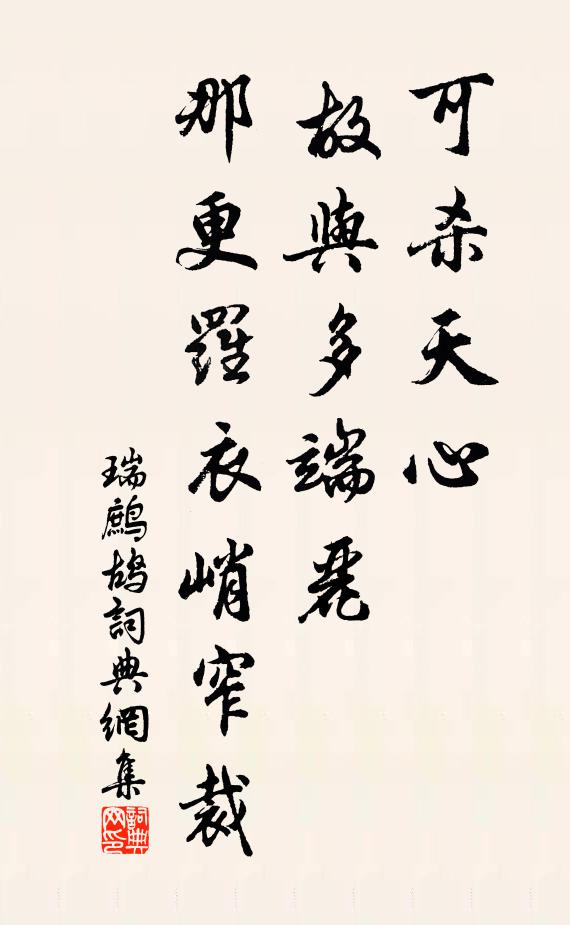 可杀天心
故與多端麗
那更羅衣峭窄裁
瑞鷓鴣詞典網集
詞典網印